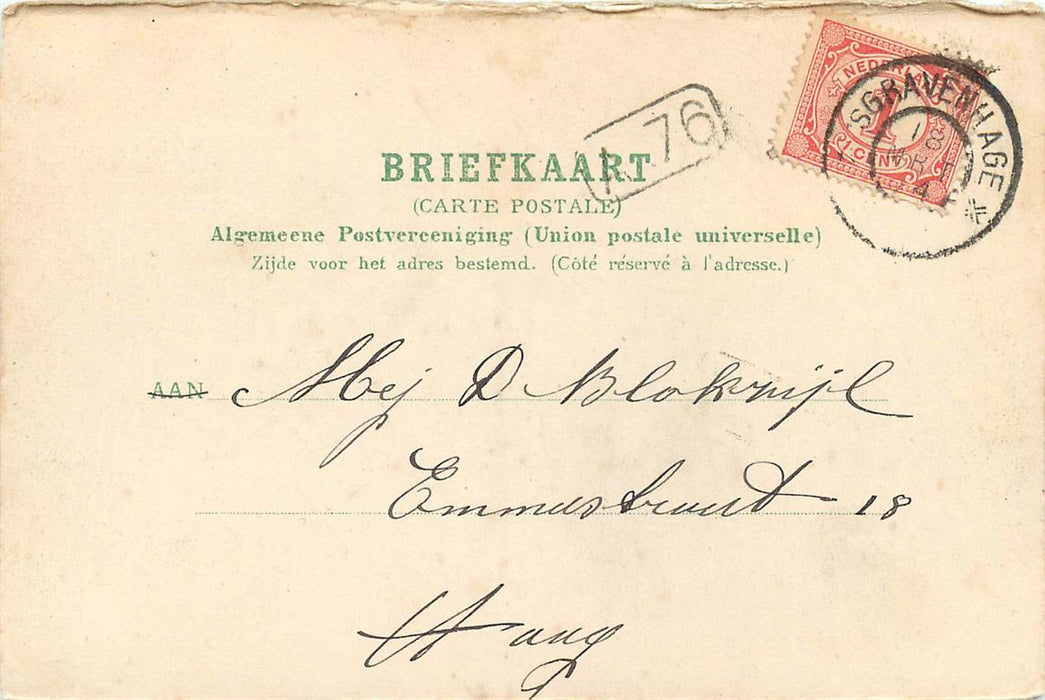 NEDERLAND
1
1 CENT
'SGRAVENHAGE
76
BRIEFKAART
(CARTE POSTALE)
Algemeene Postvereeniging (Union postale universelle)
Zijde voor het adres bestemd. (Côté réservé à l'adresse.)
AAN Mej D Blokzijl
Emmastraat 18
Haag